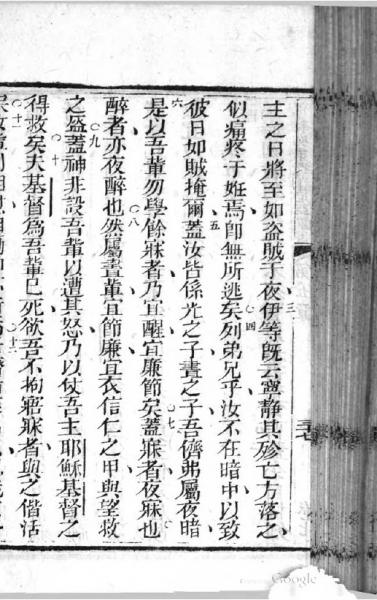 主之日將至如盜賊于夜伊等旣云寧靜其殄亡方落之
似痛疼于姙焉卽無所逃矣列弟兄乎汝不在暗中以致
彼日如賊掩爾蓋汝皆係光之子晝之子吾儕弗屬夜暗
是以吾輩勿學餘寐者乃宜醒宜廉節矣蓋寐者夜寐也
醉者亦夜醉也然屬晝輩宜節廉宜衣信仁之甲與望救
之盔蓋神非設吾輩以遭其怒乃以仗吾主耶穌基督之
得救矣夫基督爲吾輩已死欲吾不拘寤寐者與之偕活
Google